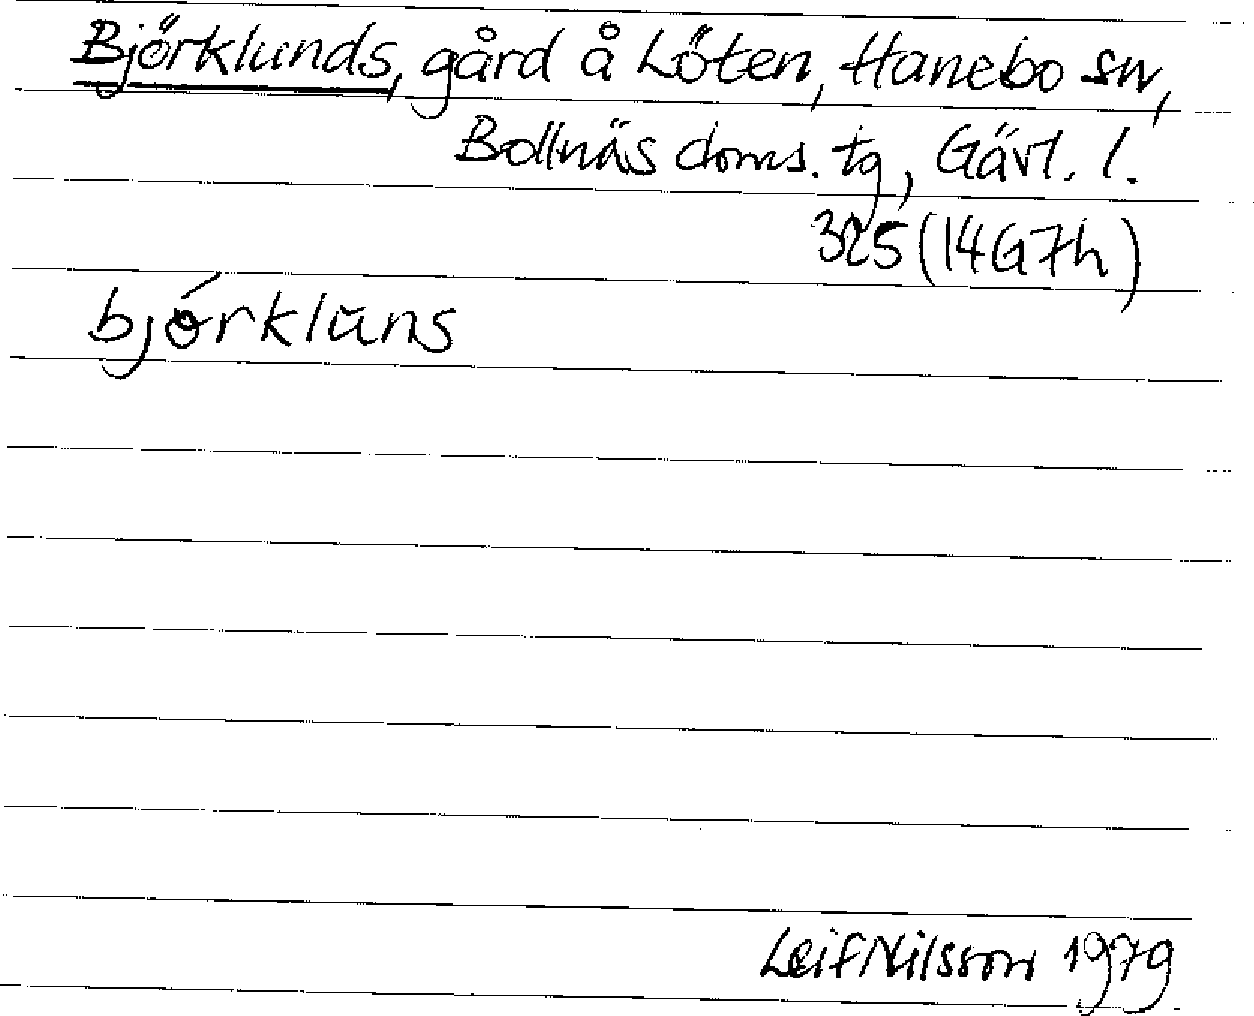 Björklunds, gård å Löten, Hanebo sn,
Bollnäs doms. tg, Gävl. l.
325 (14G7h)
bjórkluns
Leif Nilsson 1979.